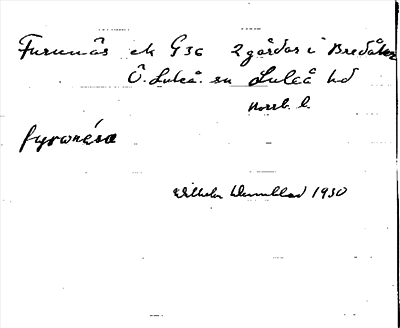 Furunäs ek G36 2 gårdar i Bredåker
Ö. Luleå sn Luleå hd
Norrb. l.
fyronäsa
Wilhelm 1930